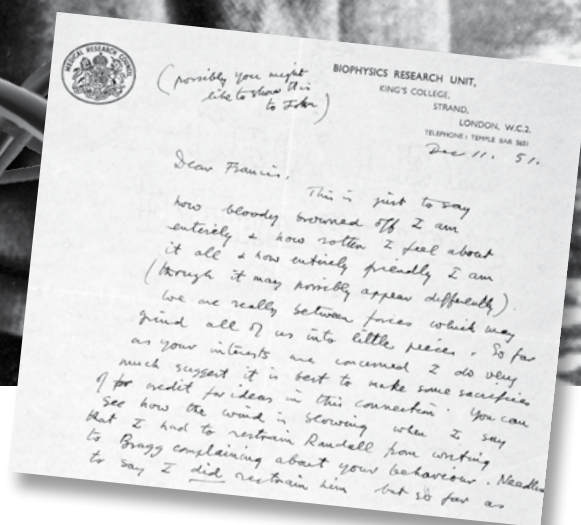 MEDICAL RESEARCH COUNCIL
(possibly you might
like to show this
to John)
BIOPHYSICS RESEARCH UNIT,
KING'S COLLEGE,
STRAND,
LONDON, W.C.2.
TELEPHONE: TEMPLE BAR 5651
Dec 11. 51.
Dear Francis,
This is just to say
how bloody browned off I am
entirely & how rotten I feel about
it all & how entirely friendly I am
(though it may possibly appear differently).
We are really between forces which may
grind all of us into little pieces. So far
as your interests are concerned I do very
much suggest it is best to make some sacrifices
of credit for ideas in this connection. You can
see how the wind is blowing when I say
that I had to restrain Randall from writing
to Bragg complaining about your behaviour. Needless
to say I did restrain him but so far as